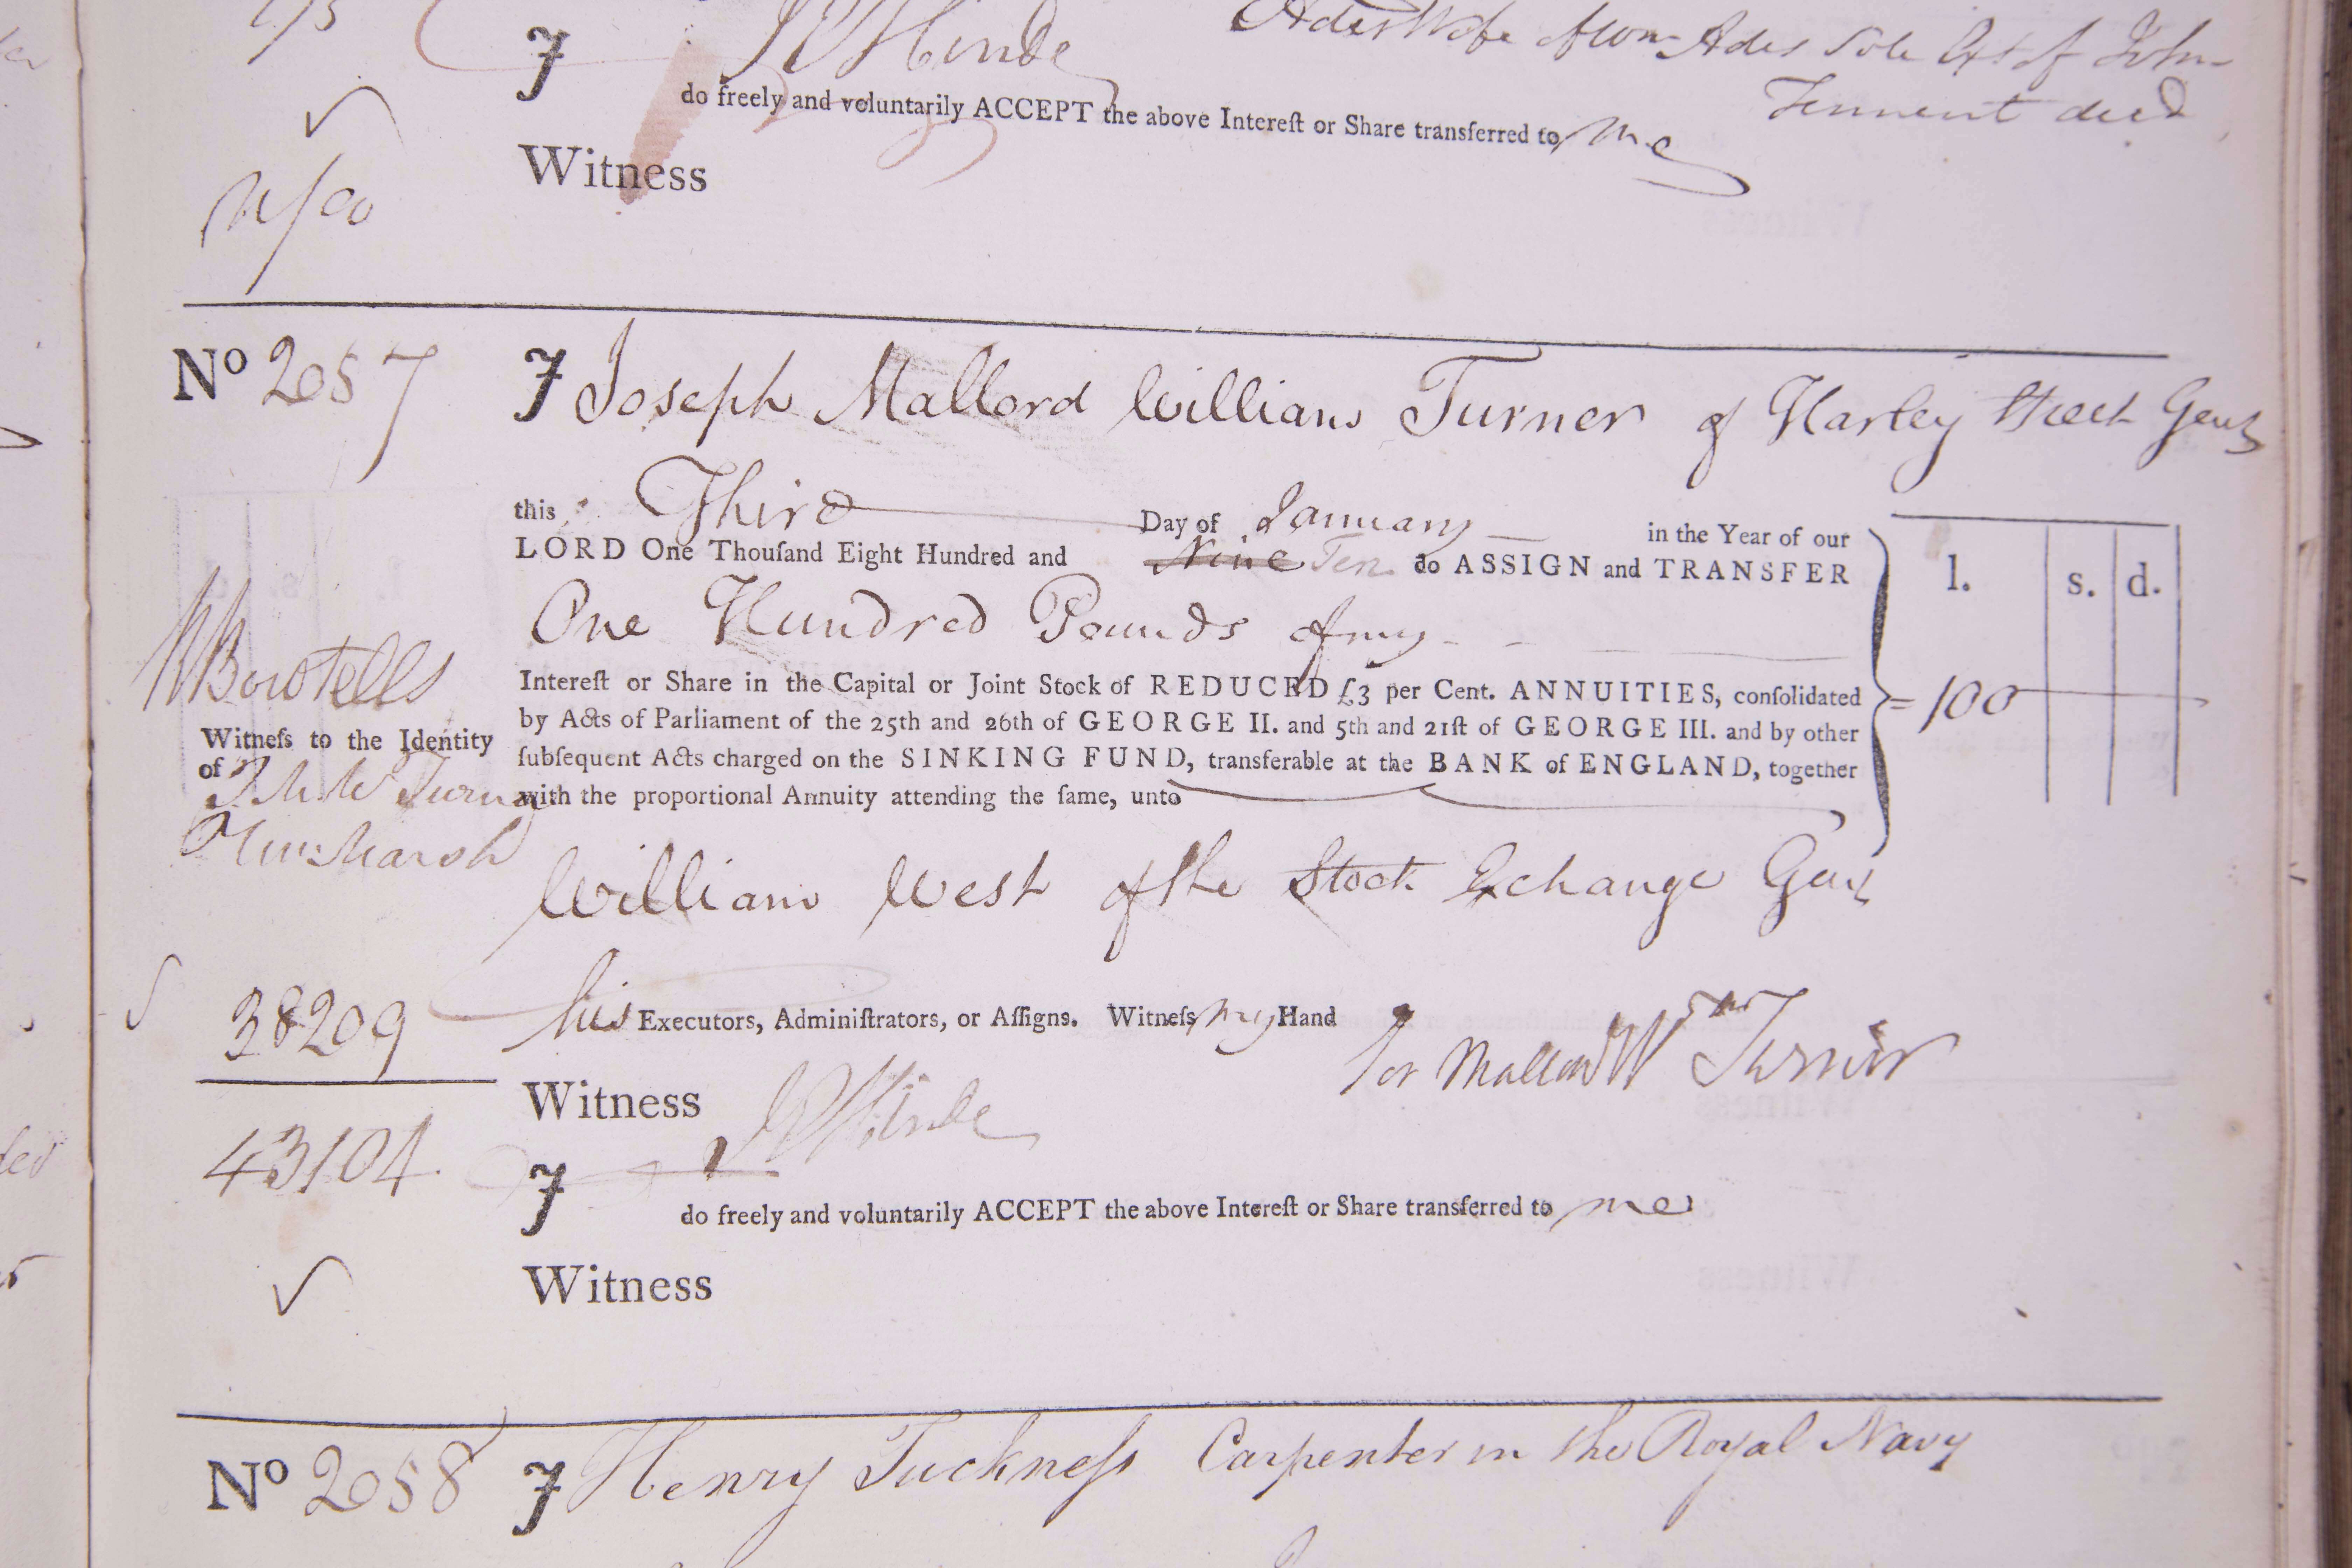 J P Hinde
Ades Wife of Wm Ades Sole Ext of John
Tennent decd
I
do freely and voluntarily ACCEPT the above Intereſt or Share transferred to me
Witness
No 2057 I Joseph Mallord William Turner of Harley Street Gent
this Third Day of January in the Year of our
LORD One Thouſand Eight Hundred and Nine Ten do ASSIGN and TRANSFER
l. s. d.
One Hundred Pounds of my
Intereſt or Share in the Capital or Joint Stock of REDUCED £3 per Cent. ANNUITIES, conſolidated
by Acts of Parliament of the 25th and 26th of GEORGE II. and 5th and 21ſt of GEORGE III. and by other
ſubſequent Acts charged on the SINKING FUND, transferable at the BANK of ENGLAND, together
with the proportional Annuity attending the ſame, unto
= 100
Bowtells
Witneſs to the Identity
of J M W Turner
Wm: Marsh
William West of the Stock Exchange Gent
38209
his Executors, Adminiſtrators, or Aſſigns. Witneſs my Hand
Jos Mallord Wm Turner
Witness J P Hinde
43104
I
do freely and voluntarily ACCEPT the above Intereſt or Share transferred to me
Witness
No 2058 I Henry Tuckneſs Carpenter in the Royal Navy